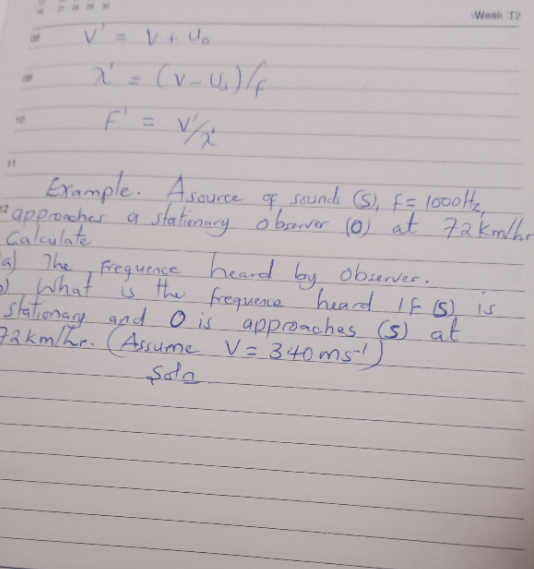 27 28 29 30
Week 12
09 V' = V + U₀
09 λ' = (V - Us)/f
10 F' = V'/λ'
11
Example. A source of sounds (S), F = 1000Hz,
12 approaches a stationary observer (O) at 72km/hr
Calculate
a) The frequence heard by observer.
b) What is the frequence heard IF (S) is
stationary and O is approaches (S) at
72km/hr. (Assume V = 340ms⁻¹)
Soln